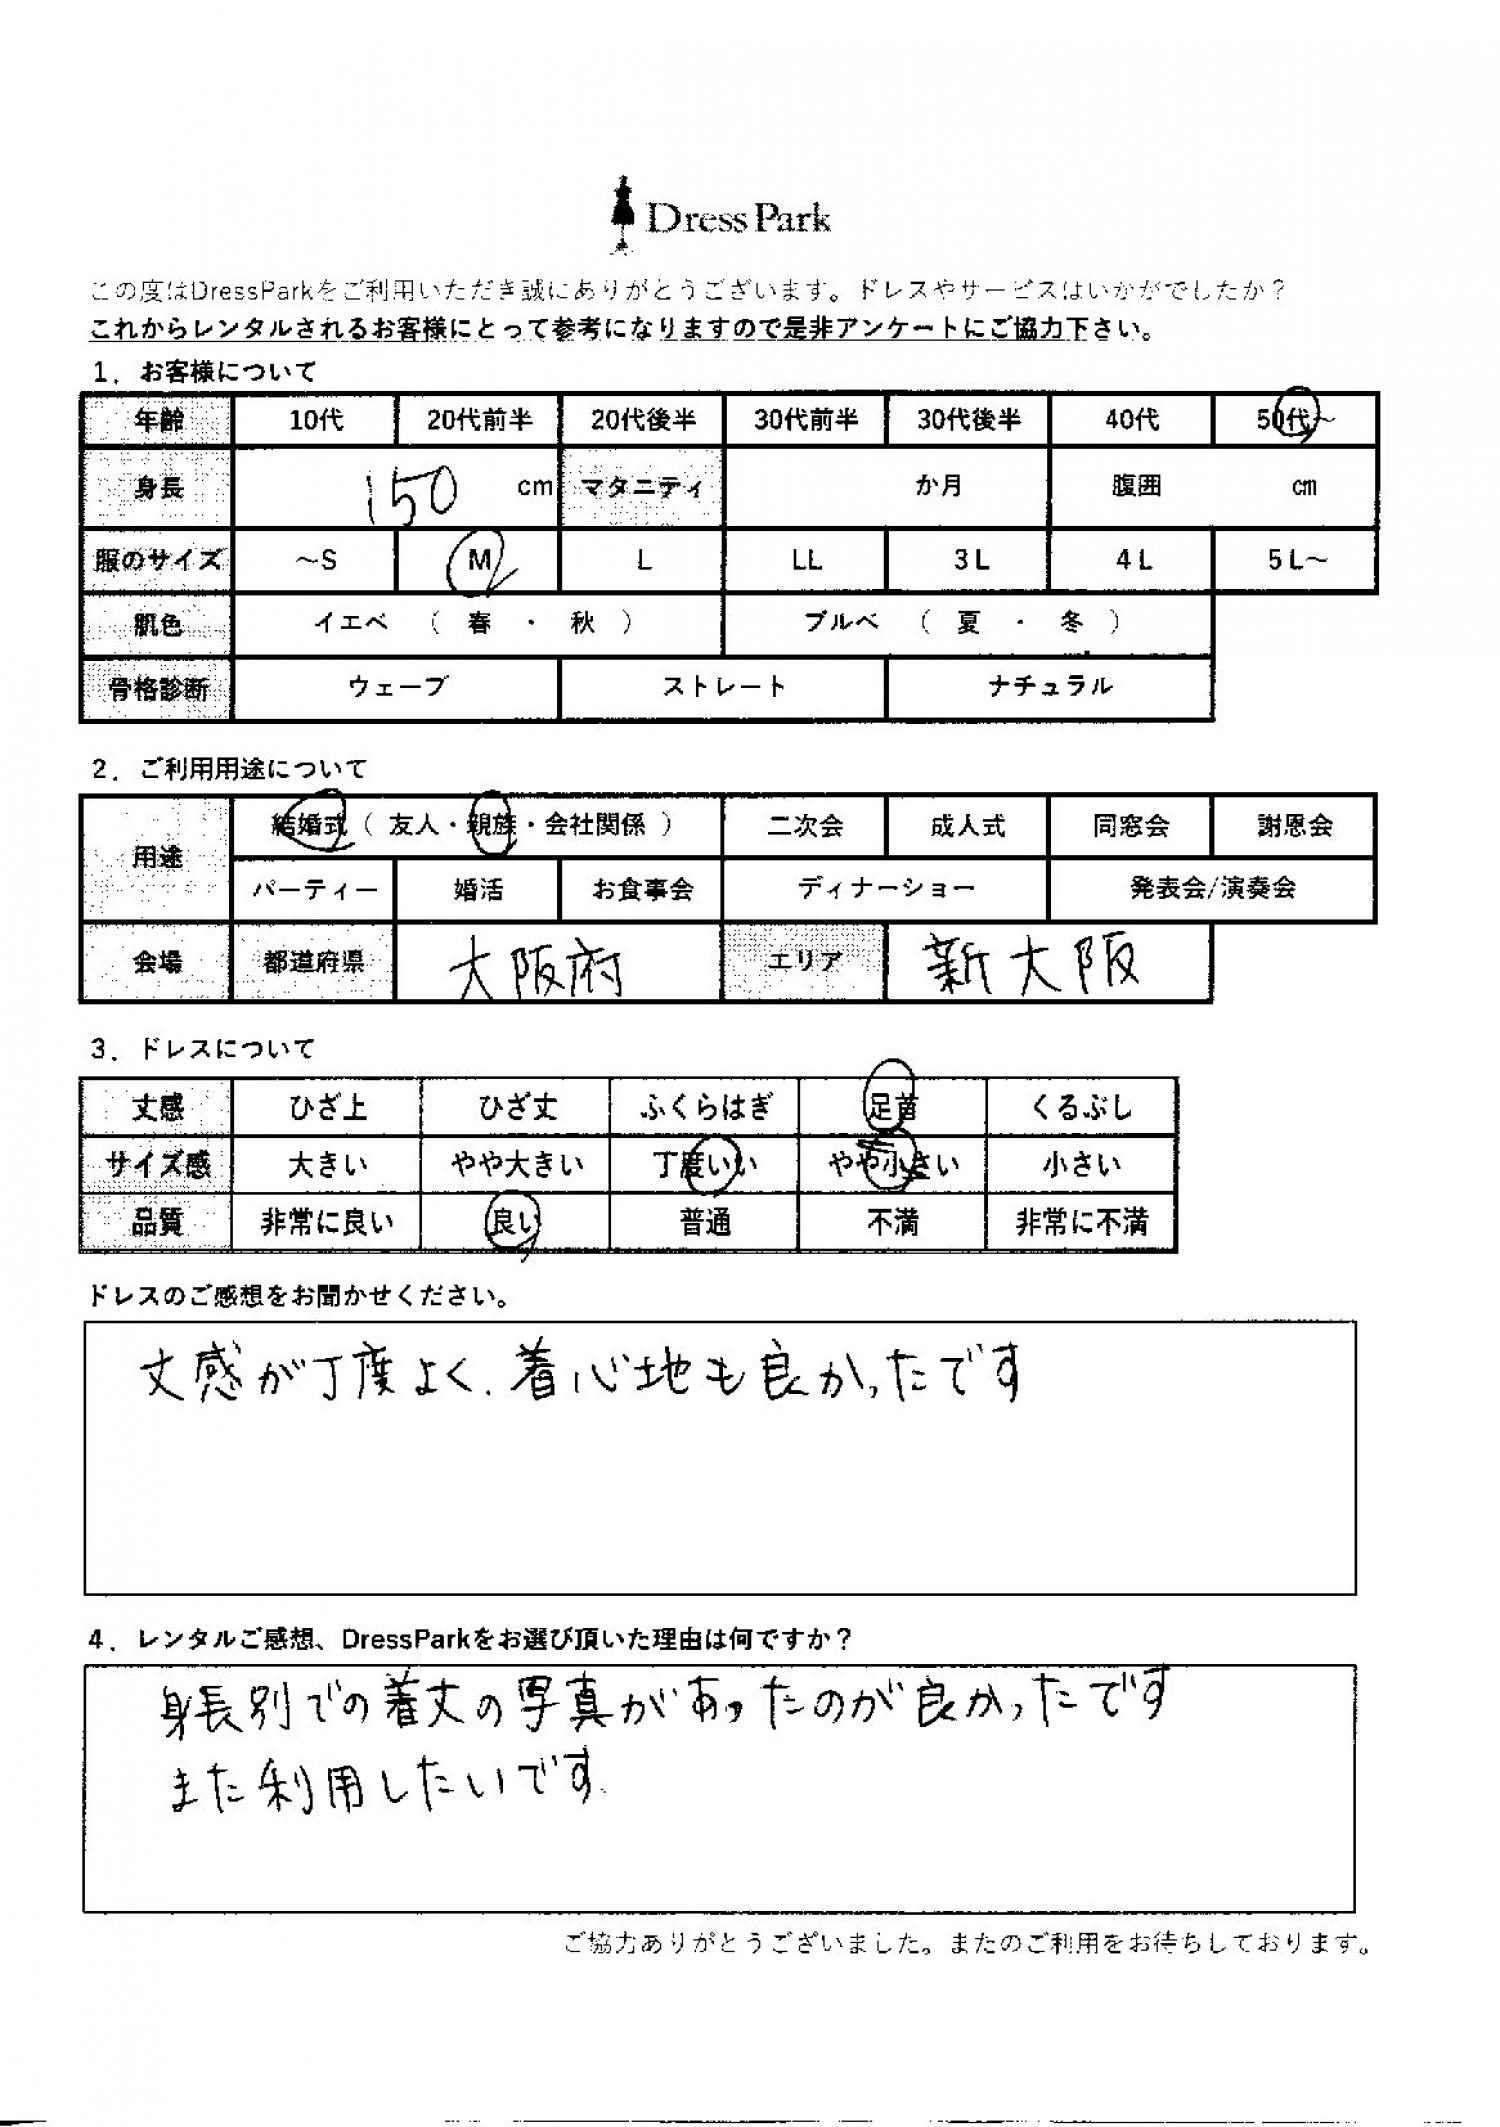 Dress Park
この度はDressParkをご利用いただき誠にありがとうございます。ドレスやサービスはいかがでしたか？
これからレンタルされるお客様にとって参考になりますので是非アンケートにご協力下さい。
1．お客様について
年齢 10代 20代前半 20代後半 30代前半 30代後半 40代 50代～
身長 150 cm マタニティ か月 腹囲 cm
服のサイズ ～S M L LL 3L 4L 5L～
肌色 イエベ （ 春 ・ 秋 ） ブルベ （ 夏 ・ 冬 ）
骨格診断 ウェーブ ストレート ナチュラル
2．ご利用用途について
用途 結婚式（ 友人・親族・会社関係 ） 二次会 成人式 同窓会 謝恩会
パーティー 婚活 お食事会 ディナーショー 発表会/演奏会
会場 都道府県 大阪府 エリア 新大阪
3．ドレスについて
丈感 ひざ上 ひざ丈 ふくらはぎ 足首 くるぶし
サイズ感 大きい やや大きい 丁度いい やや小さい 小さい
品質 非常に良い 良い 普通 不満 非常に不満
ドレスのご感想をお聞かせください。
丈感が丁度よく、着心地も良かったです
4．レンタルご感想、DressParkをお選び頂いた理由は何ですか？
身長別での着丈の写真があったのが良かったです
また利用したいです
ご協力ありがとうございました。またのご利用をお待ちしております。